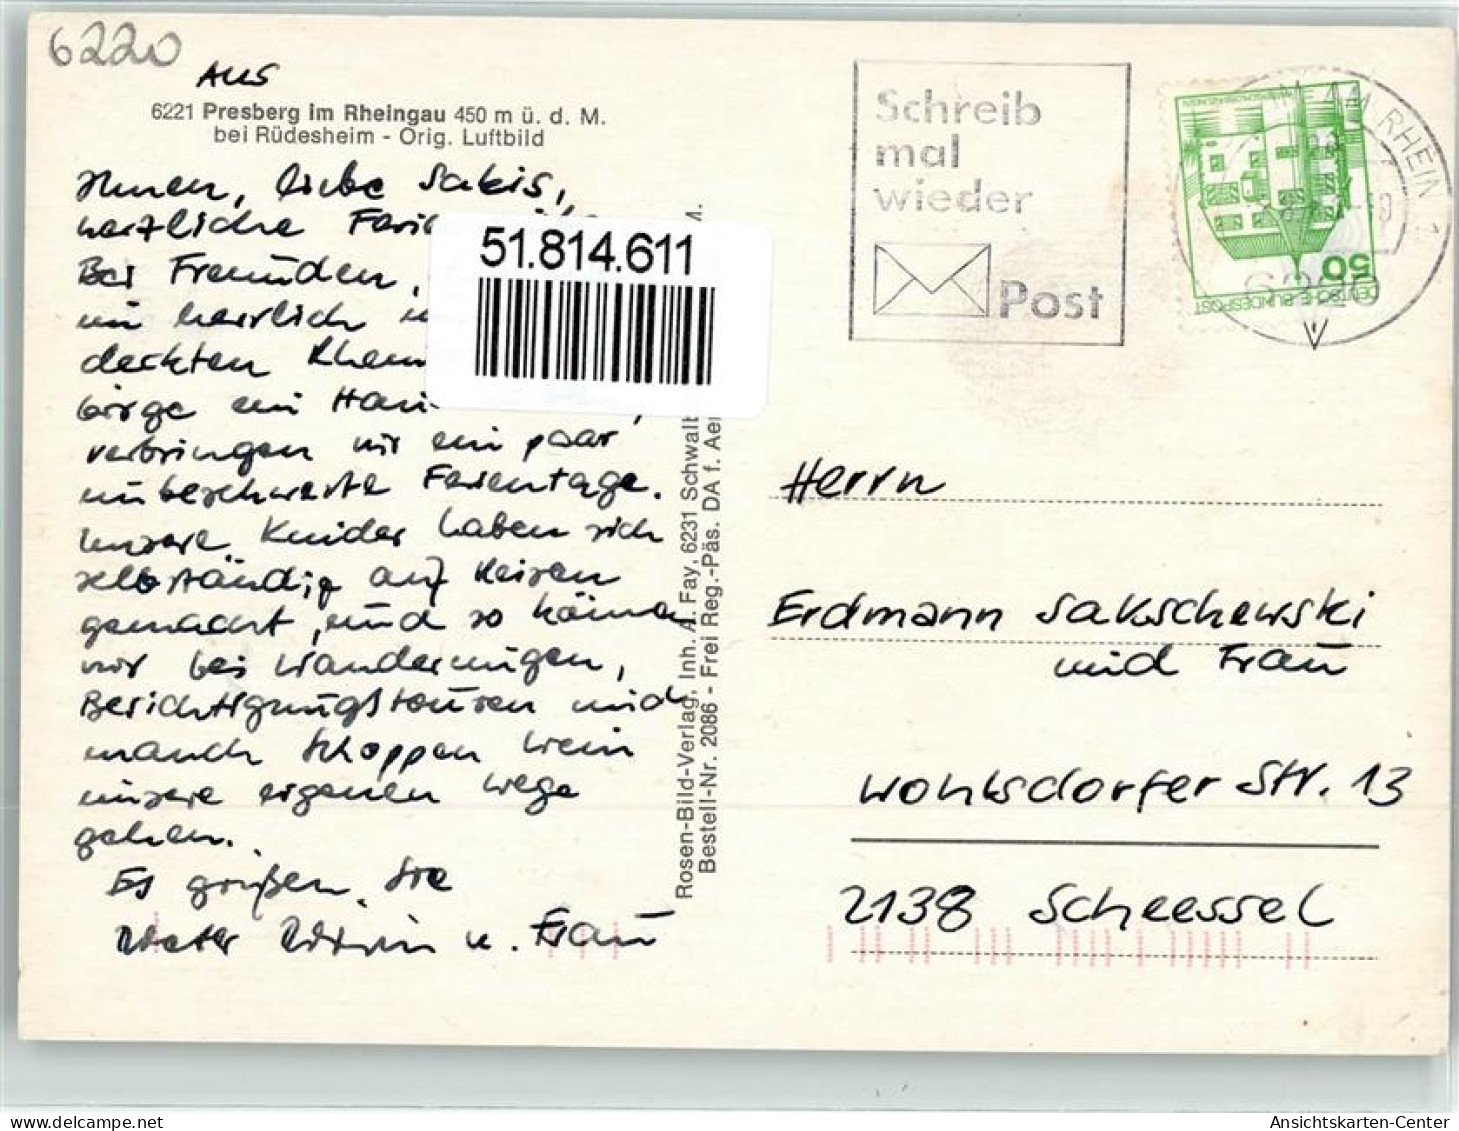 6220
Aus
6221 Presberg im Rheingau 450 m ü. d. M.
bei Rüdesheim - Orig. Luftbild
Ihnen, liebe Sakis,
herzliche
Bei Freunden,
im herrlich
deckten
birge ein
verbringen wir ein paar
unbeschwerte Ferientage.
Unsere Kinder haben sich
selbständig auf Reisen
gemacht, und so können
wir bei Wanderungen,
Besichtigungstouren und
manch Schoppen Wein
unsere eigenen Wege
gehen.
Es grüßen Sie
u. Frau
51.814.611
Rosen-Bild-Verlag, Inh. A. Fay, 6231 Schwalb
Bestell-Nr. 2086 - Frei Reg.-Präs. DA f. Aer
M.
Schreib
mal
wieder
Post
AM RHEIN 1
50
DEUTSCHE BUNDESPOST
Herrn
Erdmann Sakschewski
und Frau
Wohlsdorfer Str. 13
2138 Scheessel
Ansichtskarten-Center